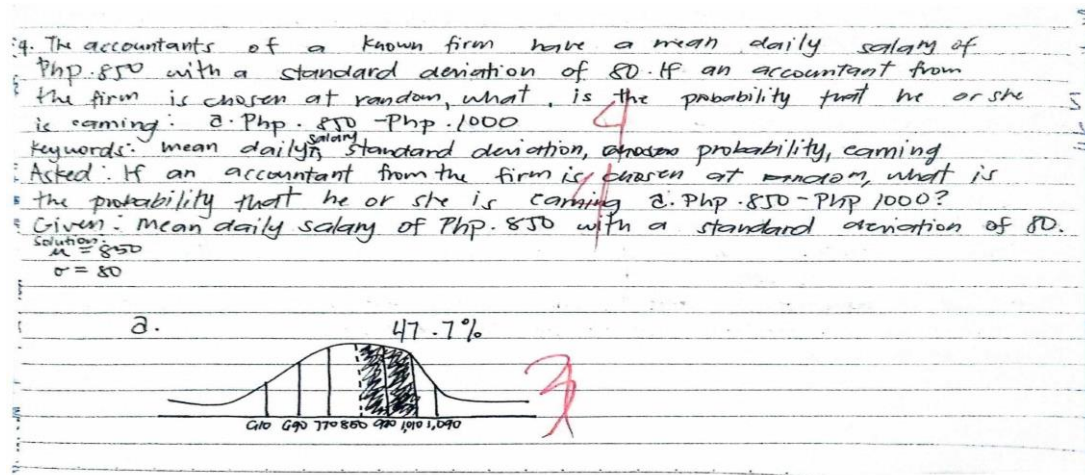 4. The accountants of a known firm have a mean daily salary of
Php.850 with a standard deviation of 80. If an accountant from
the firm is chosen at random, what is the probability that he or she
is earning: a. Php. 850 - Php. 1000
Keywords: mean daily salary, standard deviation, probability, earning
Asked: If an accountant from the firm is chosen at random, what is
the probability that he or she is earning a. Php.850 - Php 1000?
Given: Mean daily salary of Php. 850 with a standard deviation of 80.
Solution:
μ = 850
σ = 80
a. 47.7%
610 690 770 850 930 1,010 1,090